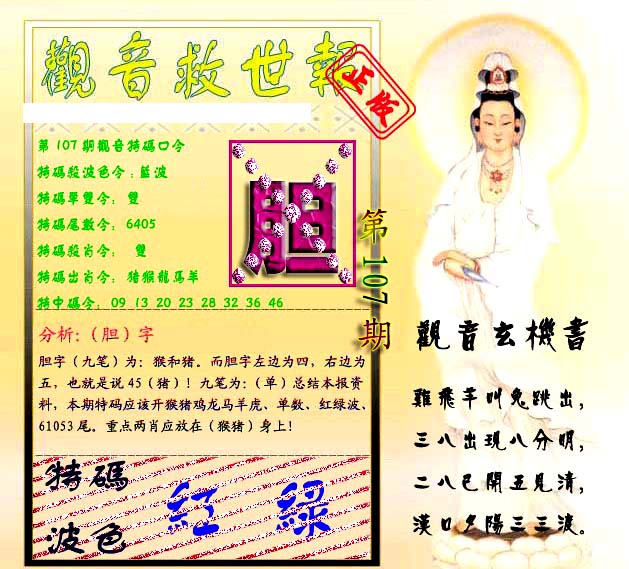 觀音救世報
正版
第107期觀音特碼口令
特碼殺波色令：藍波
特碼單雙令： 雙
特碼尾數令： 6405
特碼殺肖令： 雙
特碼出肖令： 豬猴龍馬羊
特中碼令： 09 13 20 23 28 32 36 46
胆
第107期
分析：（胆）字
胆字（九笔）为：猴和猪。而胆字左边为四，右边为
五，也就是说 45（猪）！九笔为：（单）总结本报资
料，本期特码应该开猴猪鸡龙马羊虎、单数、红绿波、
61053 尾。重点两肖应放在（猴猪）身上！
特碼
波色
紅 綠
觀音玄機書
雞飛羊叫兔跳出，
三八出現八分明，
二八已開五見清，
漢口夕陽三三渡。